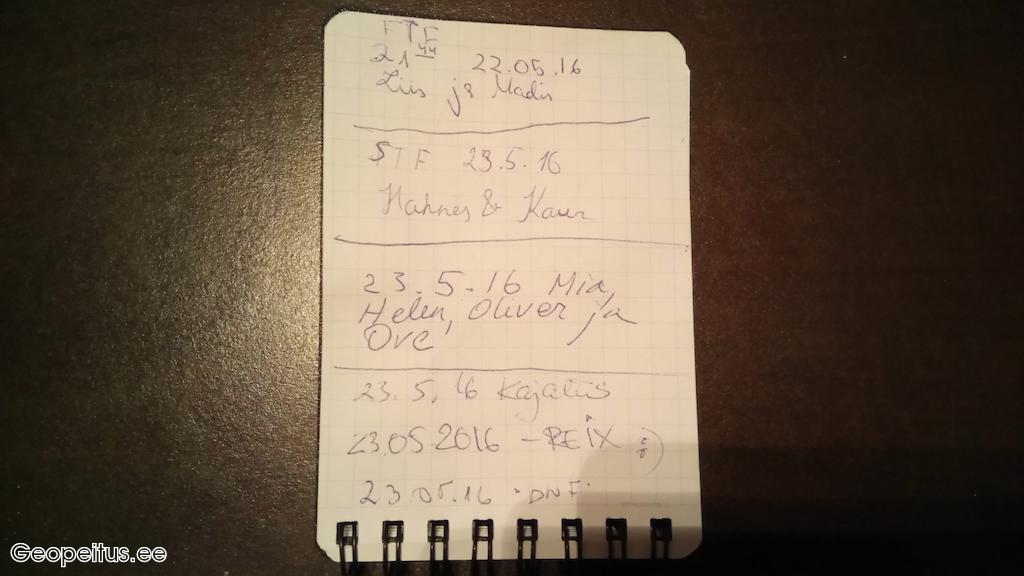 FTF
21 44 22.05.16
Liis ja Madis
STF 23.5.16
Hannes & Kaur
23.5.16 Mia,
Helen, Oliver ja
Ove
23.5.16 Kajaliis
23.05 2016 - REiX :)
23 05.16 · DNF ·
Geopeitus.ee